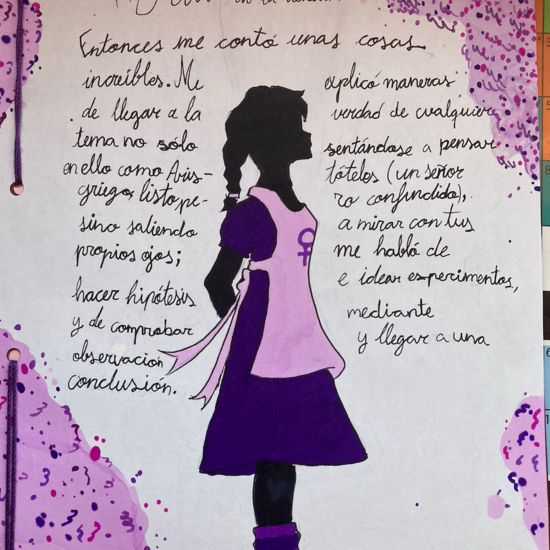 Entonces me contó unas cosas
increíbles. Me explicó maneras
de llegar a la verdad de cualquier
tema no sólo sentándose a pensar
en ello como Aris- tóteles (un señor
griego, listo pe- ro confundido),
sino saliendo a mirar con tus
propios ojos; me habló de
hacer hipótesis e idear experimentos,
y de comprobar mediante
observacion y llegar a una
conclusión.